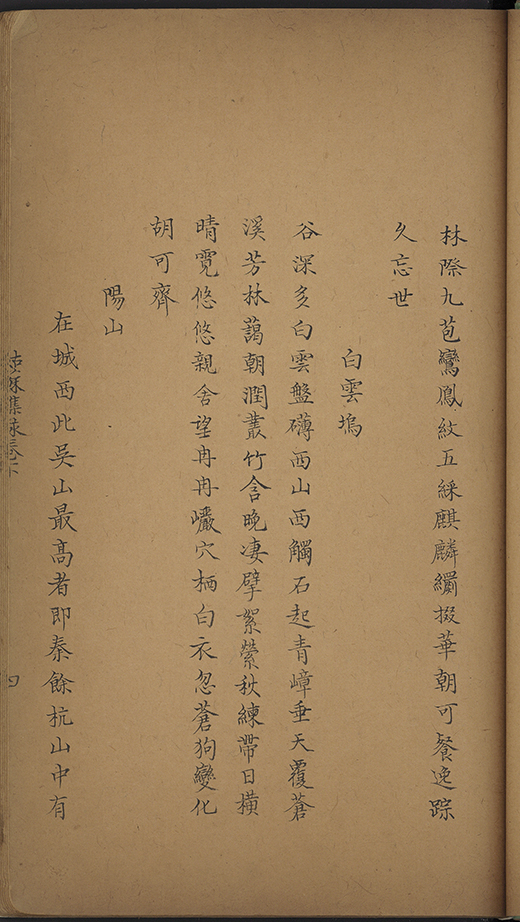 林際九苞鸞鳳紋五綵麒麟纈掇華朝可餐逸踪
久忘世
白雲塢
谷深多白雲盤礴西山西觸石起青嶂垂天覆蒼
溪芳林藹朝潤叢竹含晚凄擘絮縈秋練帶日橫
晴霓悠悠親舍望冉冉巗穴栖白衣忽蒼狗變化
胡可齊
陽山
在城西此吳山最高者即秦餘杭山中有
集卷下